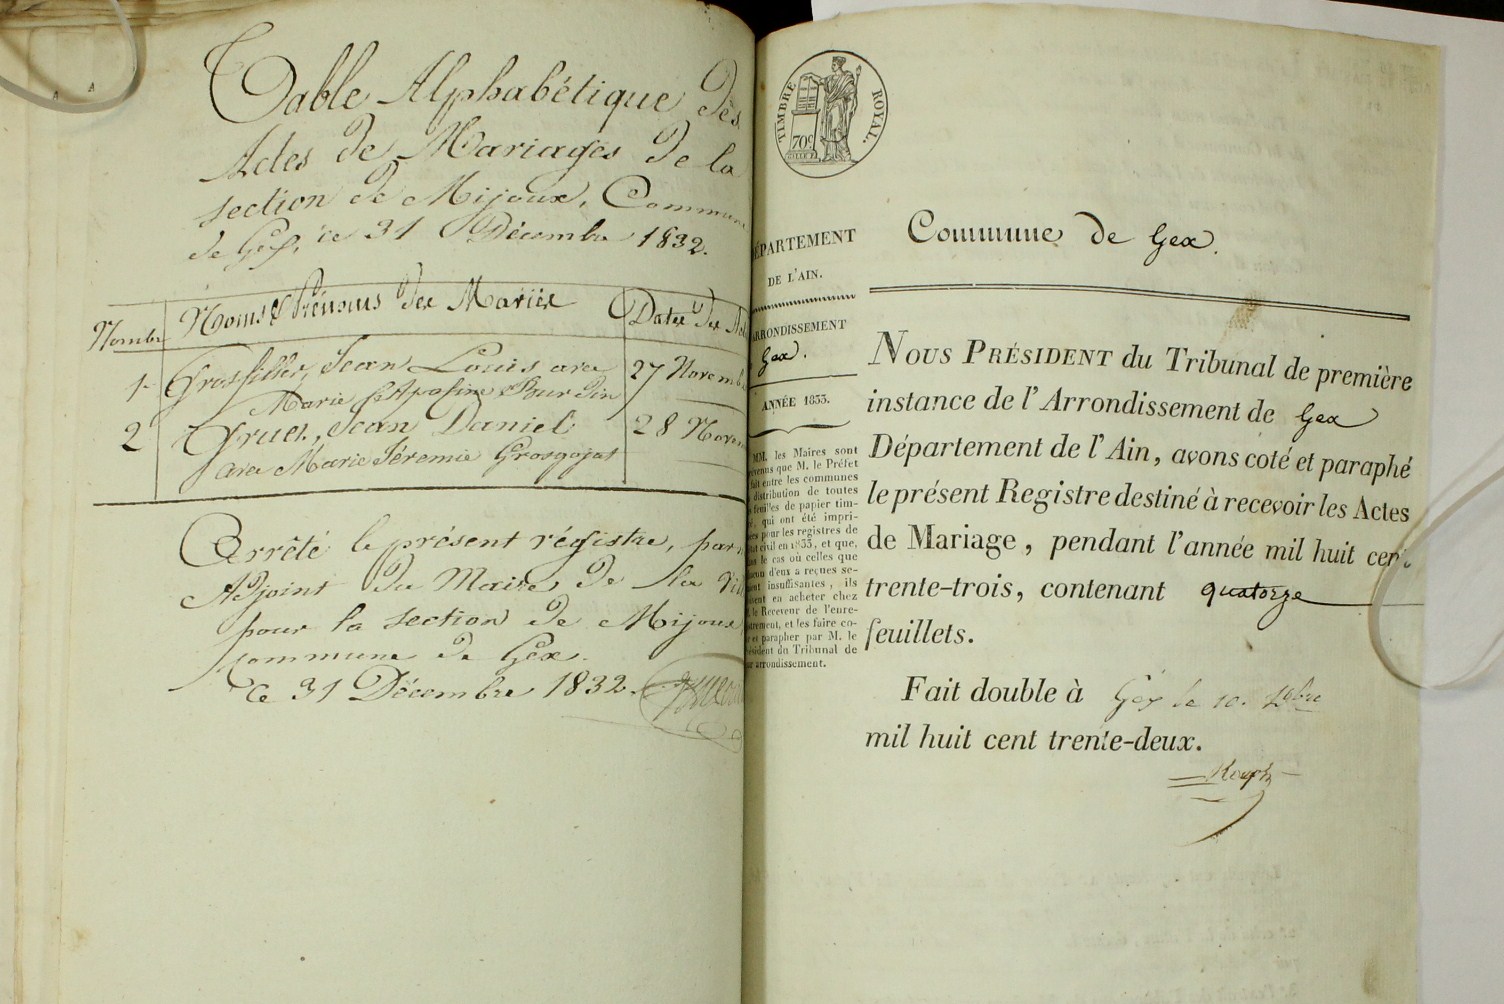 Table Alphabétique Des
Actes de Mariages de la
section de Mijoux, Commune
de Gex, ce 31 Décembre 1832.
Nombre Noms & Prénoms des Mariés Dates des
1 Grosfillex, Jean Louis avec 27 Novembre
Marie
2 Gruet, Jean Daniel 28 Novem
avec Marie Jéremie Grosgojat
Arrêté le présent régistre, par
Adjoint du Maire de la
pour la section de Mijoux
commune de Gex.
Ce 31 Décembre 1832.
TIMBRE ROYAL.
70c
Commune de Gex.
DÉPARTEMENT
DE L'AIN.
ARRONDISSEMENT
Gex.
ANNÉE 1833.
MM. les Maires sont
prévenus que M. le Préfet
fait entre les communes
distribution de toutes
feuilles de papier tim-
qui ont été impri-
pour les registres de
civil en 1833, et que,
le cas où celles que
d'eux a reçues se-
insuffisantes, ils
en acheter chez
le Receveur de l'enre-
gistrement, et les faire co-
et parapher par M. le
Président du Tribunal de
arrondissement.
NOUS PRÉSIDENT du Tribunal de première
instance de l'Arrondissement de Gex
Département de l'Ain, avons coté et paraphé
le présent Registre destiné à recevoir les Actes
de Mariage, pendant l'année mil huit cent
trente-trois, contenant quatorze
feuillets.
Fait double à Gex le 10. Xbre
mil huit cent trente-deux.